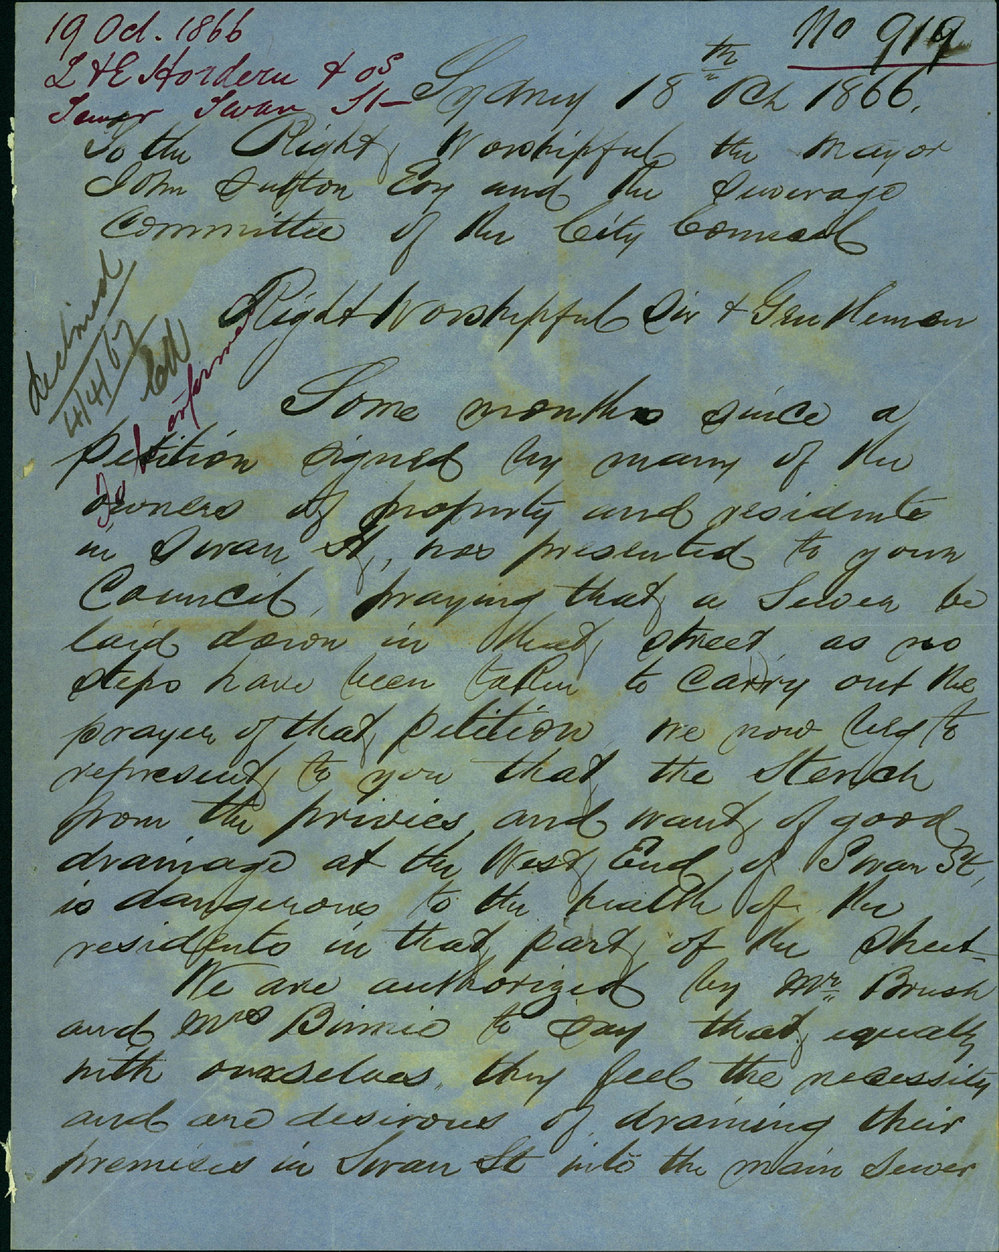 19 Oct. 1866
L & E Hordern & os
Sewer Swan St
No 919
Sydney 18th Oct 1866.
To the Right Worshipful the Mayor
John Sutton Esq and the Sewerage
Committee of the City Council
declined
4/4/67
To be informed
Right Worshipful Sir & Gentlemen
Some months since a
petition signed by many of the
owners of property and residents
in Swan St, was presented to your
Council, praying that a Sewer be
laid down in that street, as no
steps have been taken to carry out the
prayer of that petition we now beg to
represent to you that the Stench
from the privies, and want of good
drainage at the West End of Swan St,
is dangerous to the health of the
residents in that part of the street
We are authorized by Mr Brush
and Mrs Binnie to say that equally
with ourselves, they feel the necessity
and are desirous of draining their
premises in Swan St into the main Sewer